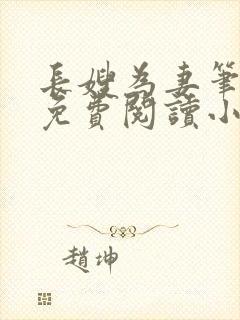 長嫂為妻筆
免費閱讀小
趙坤